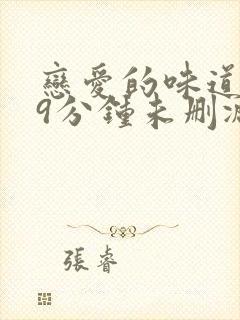 戀愛的味道
9分鍾未刪減
張睿